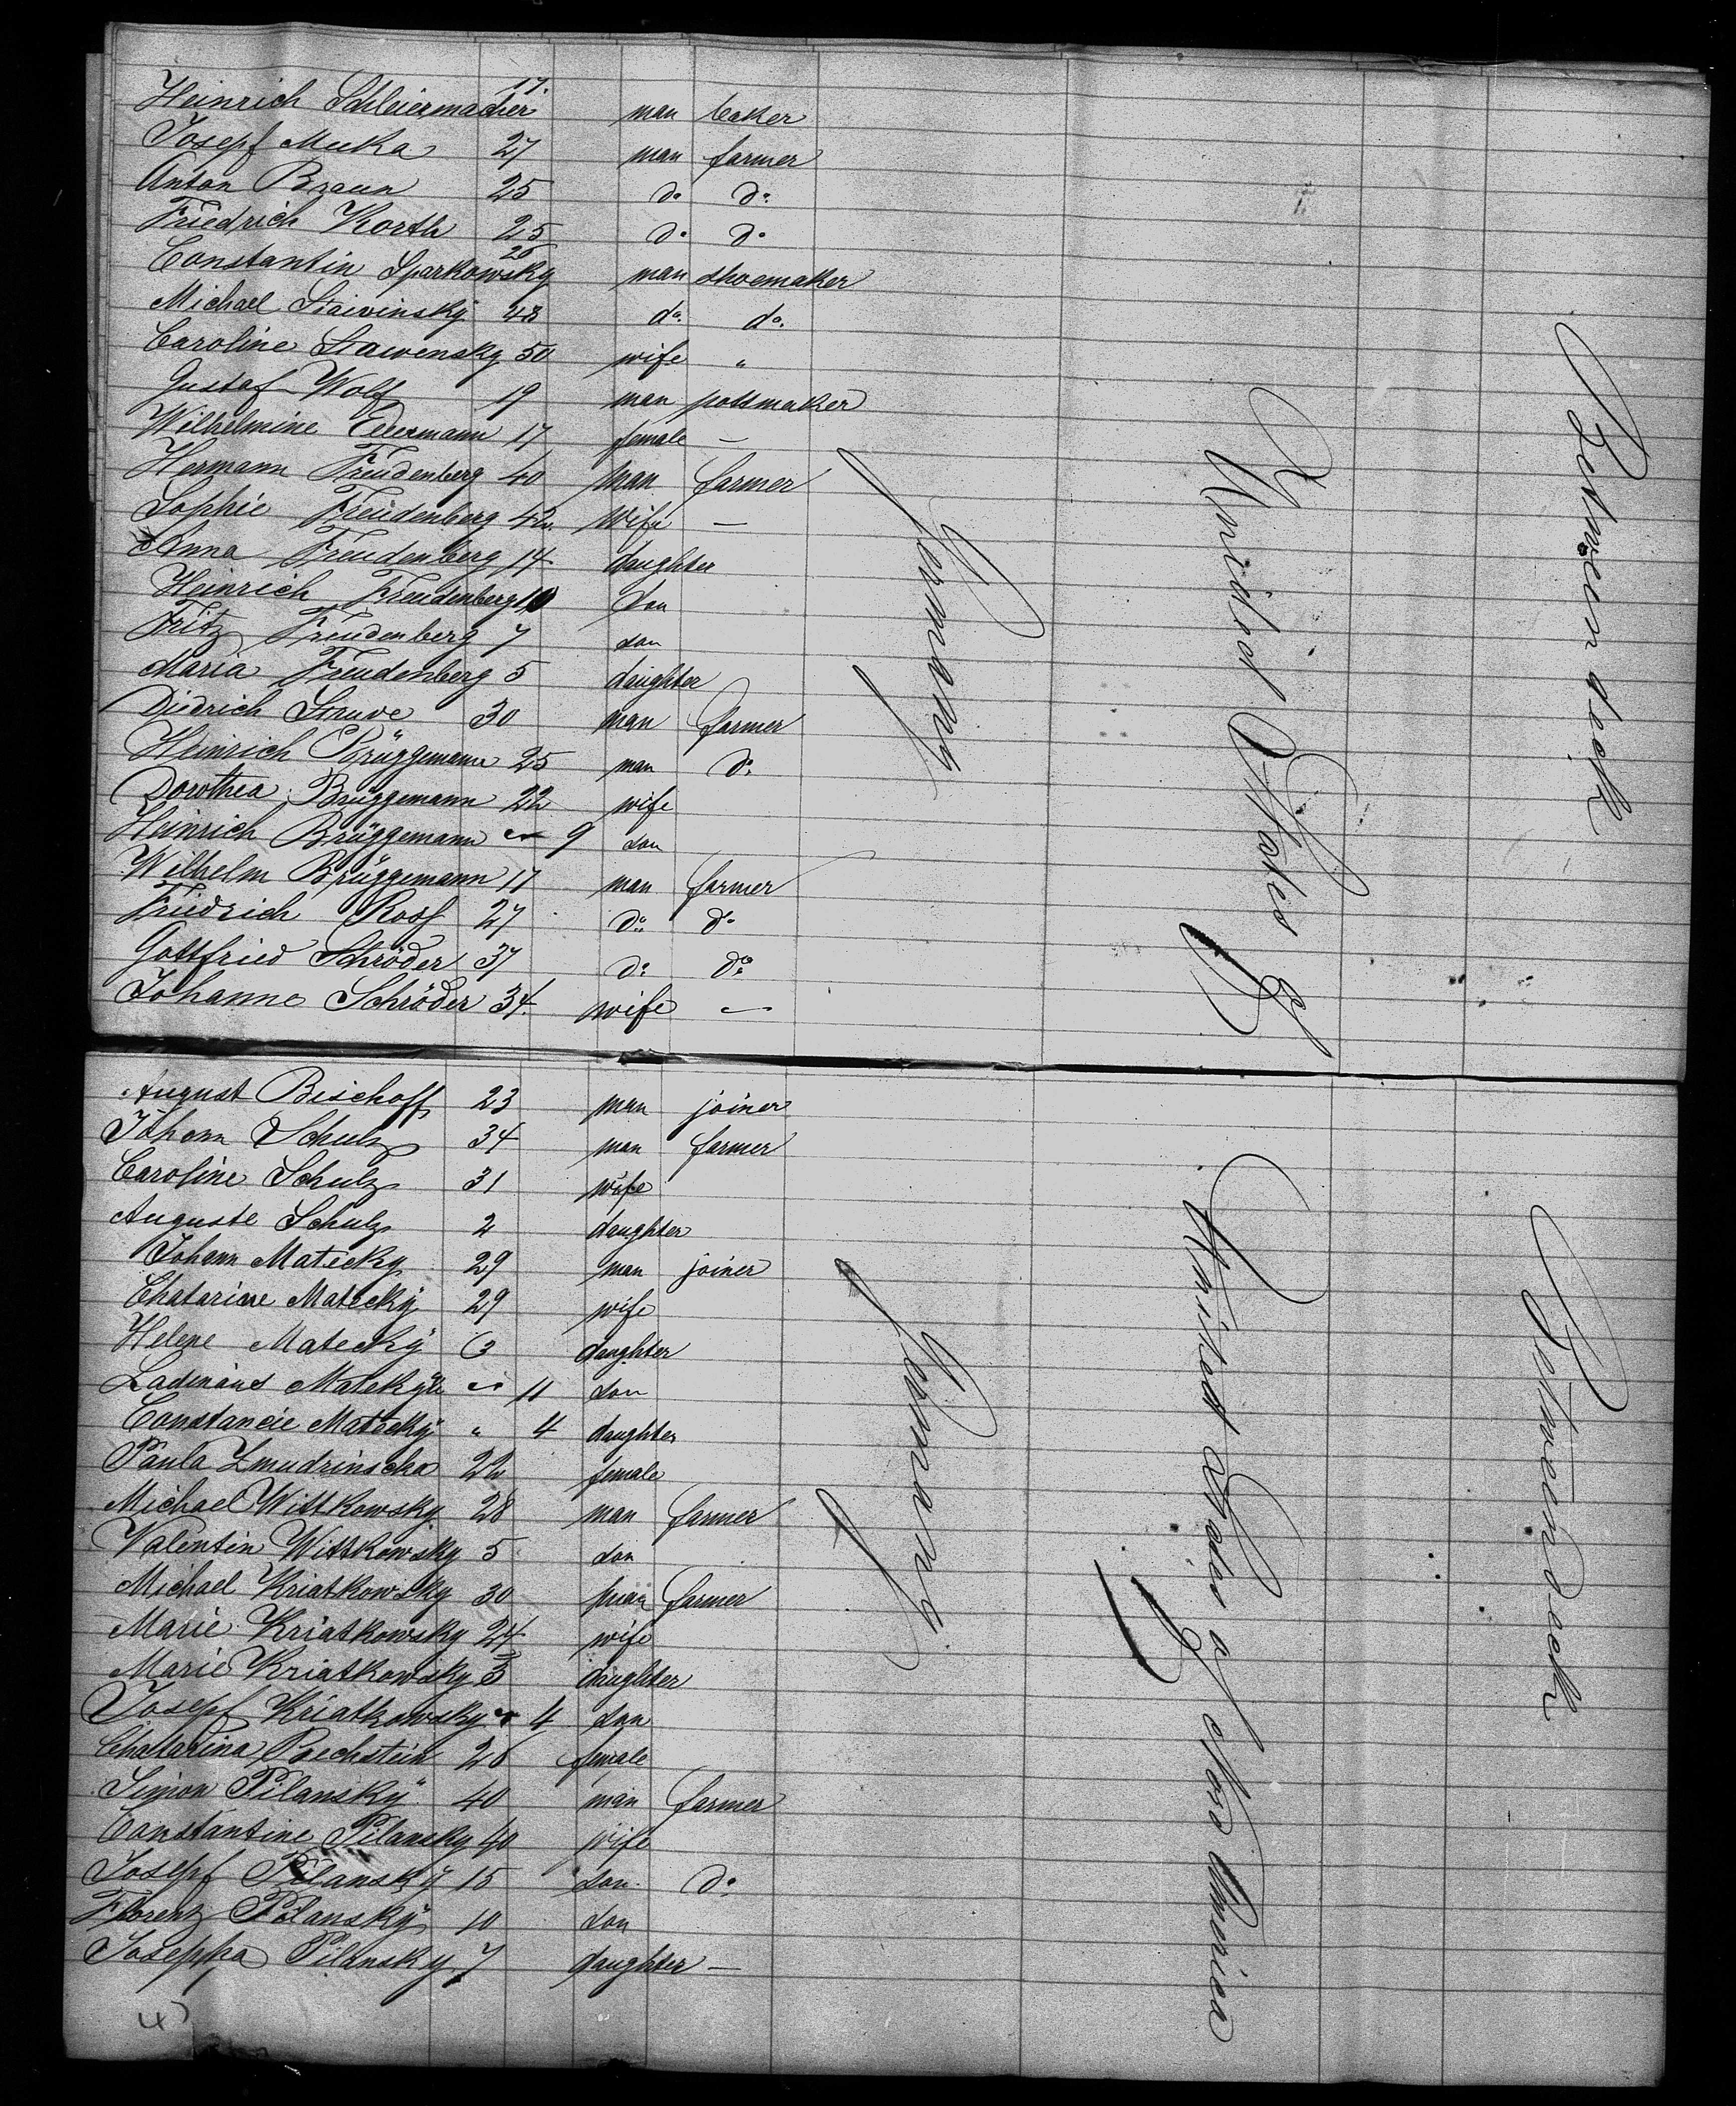 Heinrich Schleiermacher 17. man baker
Josepf Muka 27 man farmer
Anton Braun 25 do do
Friedrich Korth 25 do do
Constantin Sparkowsky 26 man shoemaker
Michael Stawinsky 48 do. do.
Caroline Stawensky 50 wife "
Gustaf Wolf 19 man pottmaker
Wilhelmine 17 female —
Hermann Freudenberg 40 man farmer
Sophie Freudenberg 42 wife —
Anna Freudenberg 14 daughter
Heinrich Freudenberg 10 son
Fritz Freudenberg 7 son
Maria Freudenberg 5 daughter
Diedrich Struve 30 man farmer
Heinrich Brüggemann 25 man do
Dorothea Brüggemann 22 wife
Heinrich Brüggemann " 9 son
Wilhelm Brüggemann 17 man farmer
Friedrich Roof 27 do do
Gottfried Schröder 37 do do
Johanne Schröder 34. wife —
Germany
United States of
Between deck
August Bischoff 23 man joiner
Johann Schulz 34 man farmer
Caroline Schulz 31 wife
Auguste Schulz 2 daughter
Johann Matecky 29 man joiner
Chatarine Matecky 29 wife
Helene Matecky 3 daughter
Matecky " 11 son
Constancie Matecky " 4 daughter
Paula Zmudrinscka 22 female
Michael Wittkowsky 28 man farmer
Valentin Wittkowsky 5 son
Michael Kriatkowsky 30 man farmer
Marie Kriatkowsky 24 wife
Marie Kriatkowsky 3 daughter
Josepf Kriatkowsky " 4 son
Chatarina Bechstein 26 female
Simon Pilansky 40 man farmer
Constantine Pilansky 40 wife
Josepf Pilansky 15 son do
Florentz Pilansky 10 son
Joseppa Pilansky 7 daughter —
Germany
United States of Nord America
Between deck
4)